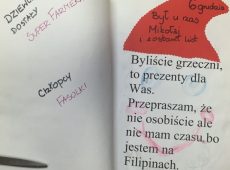 DZIEWC
DOSTAŁY
SUPER FARMER
Chłopcy
FASOLKI
6 grudnia
Był u nas
Mikołaj
i zostawił list
Byliście grzeczni,
to prezenty dla
Was.
Przepraszam, że
nie osobiście ale
nie mam czasu bo
jestem na
Filipinach.